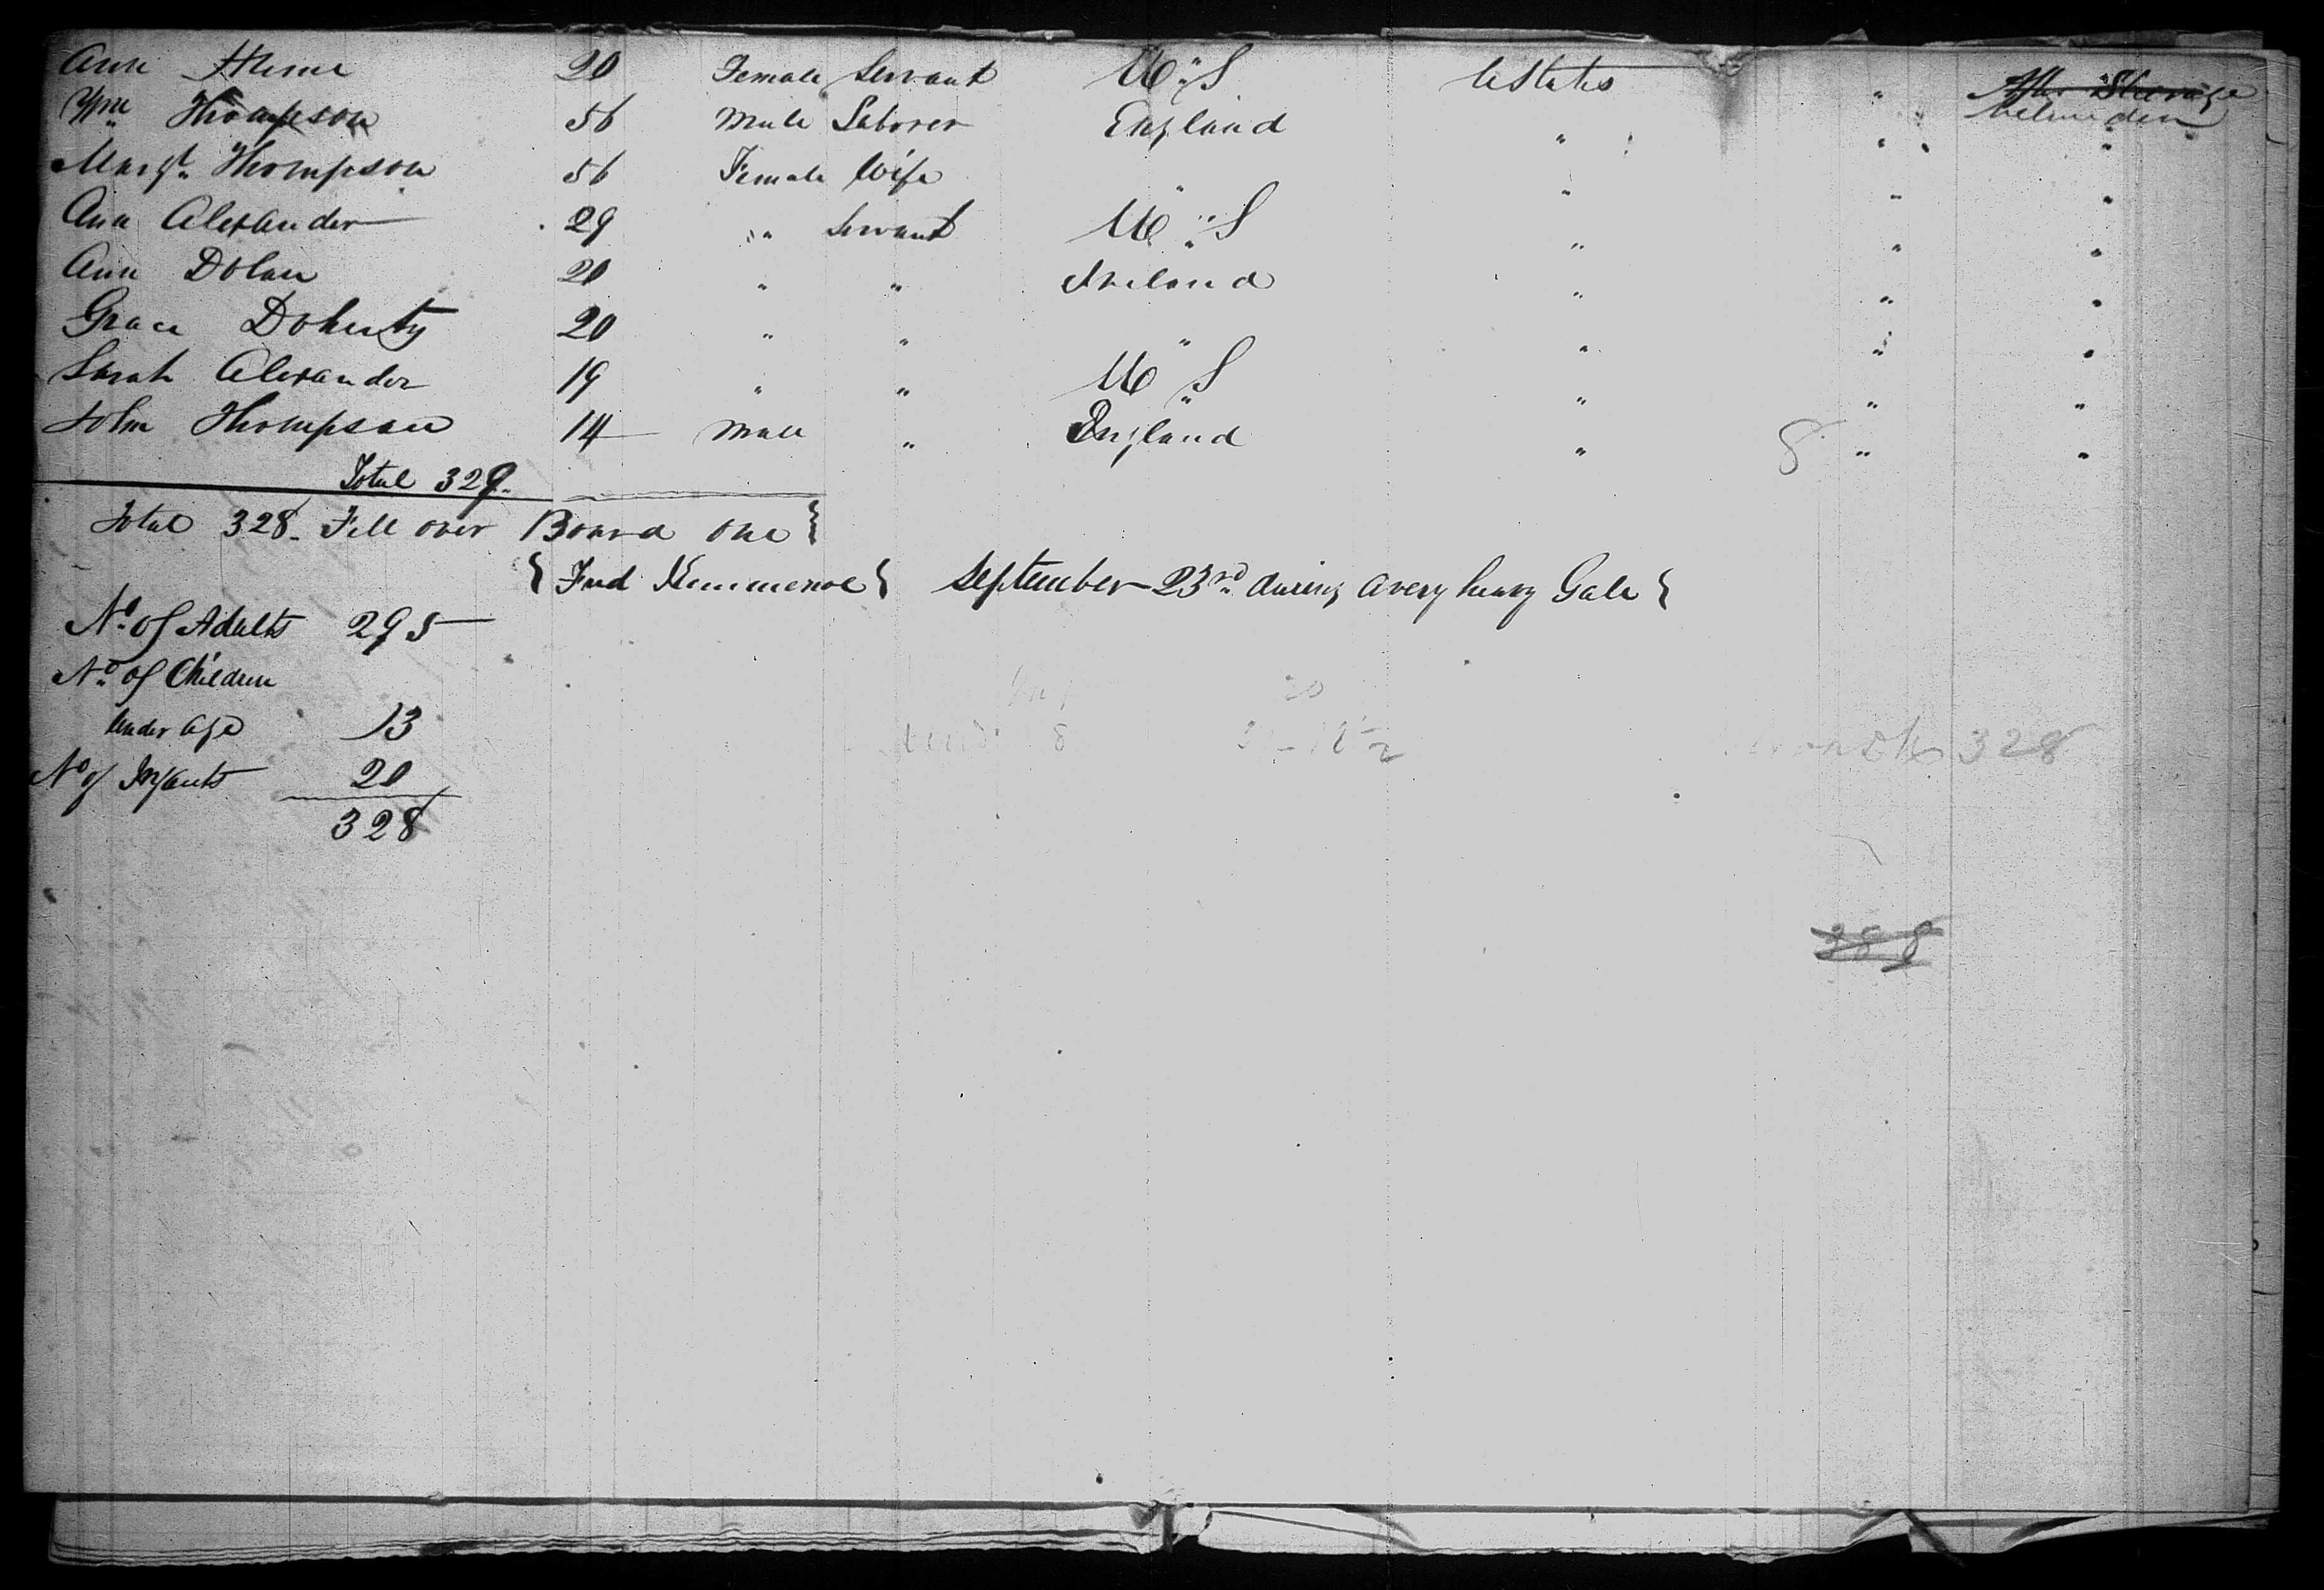 Ann 20 Female Servant U " S U States "
Wm Thompson 56 Male Laborer England " " "
Margt Thompson 56 Female Wife " " " "
Ann Alexander 29 " Servant U " S " " "
Ann Dolan 20 " " Ireland " " "
Grace Doherty 20 " " " " " "
Sarah Alexander 19 " " U " S " " "
John Thompson 14 Male " England " 8 " "
Total 329.
Total 328. Fell over Board one }
{ Fred } September 23rd. during a very heavy Gale }
No. of Adults 295
No. of Children
Under Age 13
No of Infants 20
328
20
8
328